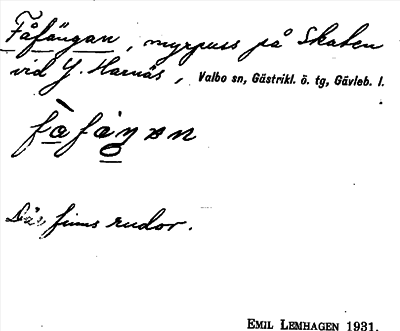 Fåfängan, myrpuss på Skaten
vid Y. Harnäs, Valbo sn, Gästrikl. ö. tg, Gävleb. l.
Där finns rudor.
EMIL LEMHAGEN 1931.